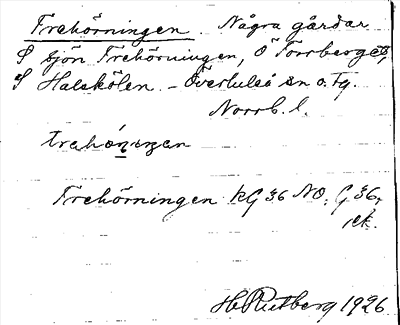 Trehörningen Några gårdar
S sjön Trehörningen, Ö Torrberget,
S Halskölen. – Överluleå sn o. tg.
Norrb. l.
trahö́niŋan
Trehörningen kG 36 NO. G 36,
ek.
H Rutberg 1926